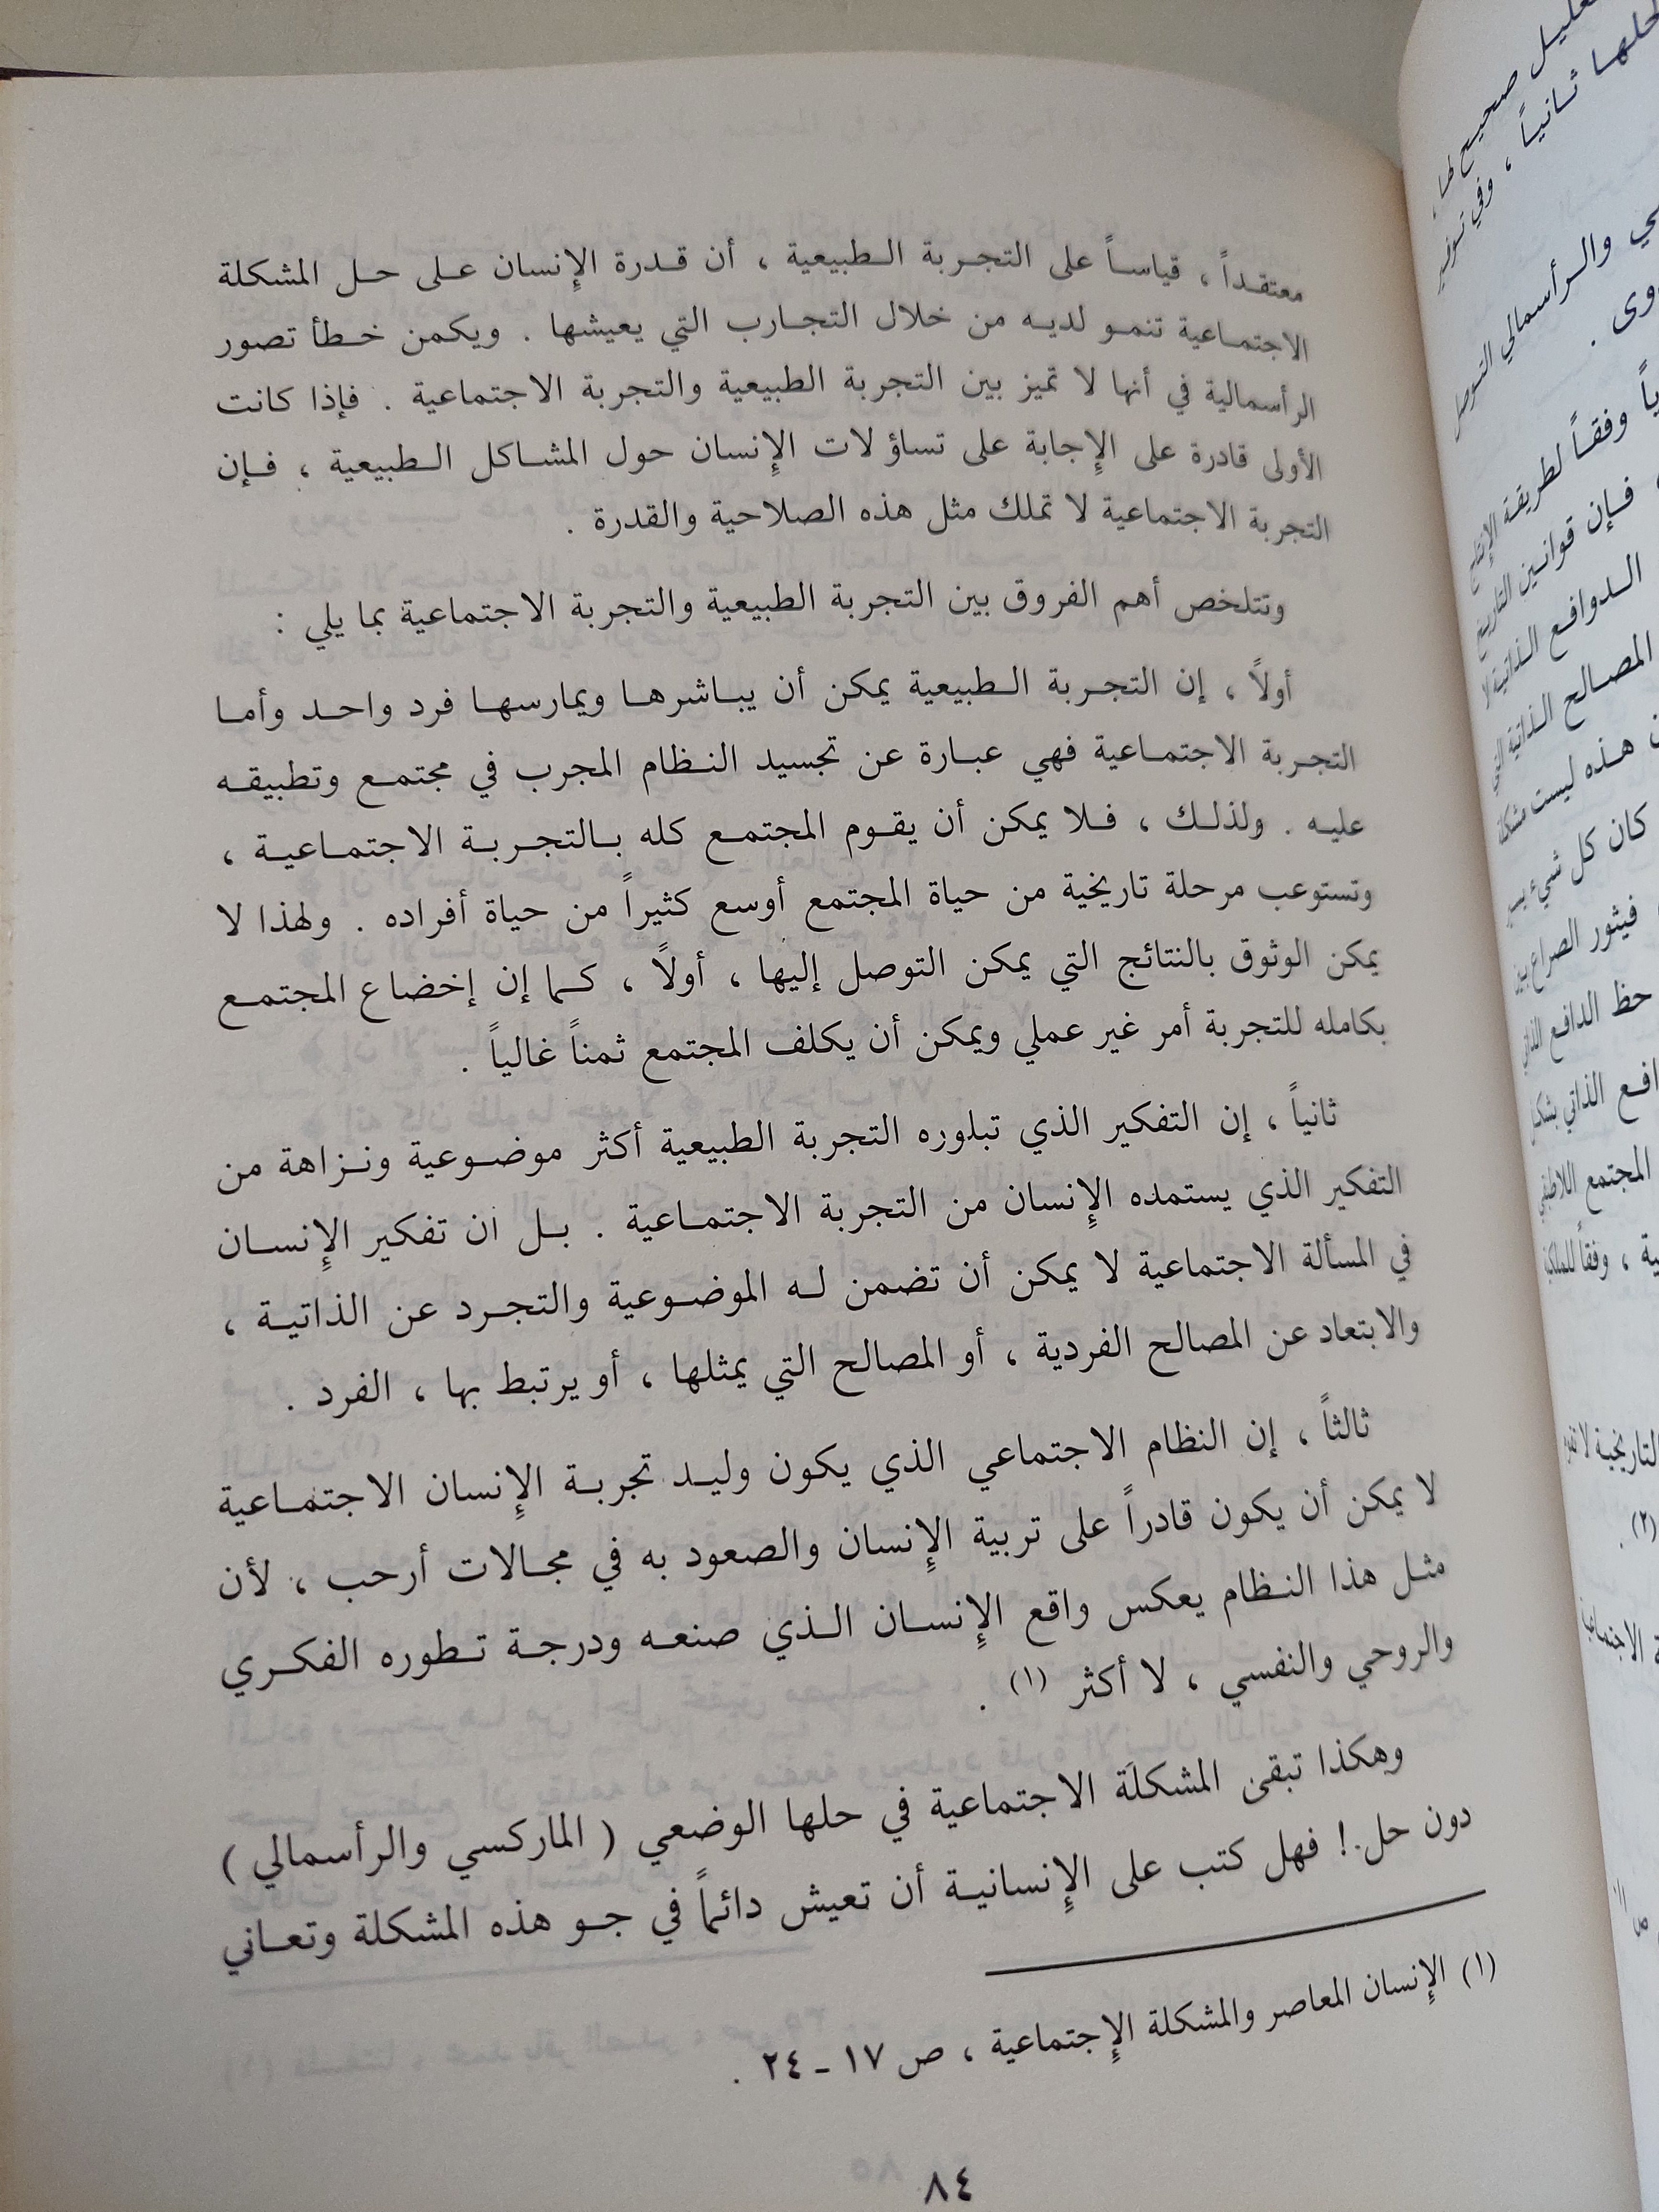 معتقداً ، قياساً على التجربة الطبيعية ، أن قدرة الإنسان على حل المشكلة
الاجتماعية تنمو لديه من خلال التجارب التي يعيشها . ويكمن خطأ تصور
الرأسمالية في أنها لا تميز بين التجربة الطبيعية والتجربة الاجتماعية . فإذا كانت
الأولى قادرة على الإجابة على تساؤلات الإنسان حول المشاكل الطبيعية ، فإن
التجربة الاجتماعية لا تملك مثل هذه الصلاحية والقدرة .
وتتلخص أهم الفروق بين التجربة الطبيعية والتجربة الاجتماعية بما يلي :
أولاً ، إن التجربة الطبيعية يمكن أن يباشرها ويمارسها فرد واحد وأما
التجربة الاجتماعية فهي عبارة عن تجسيد النظام المجرب في مجتمع وتطبيقه
عليه . ولذلك ، فلا يمكن أن يقوم المجتمع كله بالتجربة الاجتماعية ،
وتستوعب مرحلة تاريخية من حياة المجتمع أوسع كثيراً من حياة أفراده . ولهذا لا
يمكن الوثوق بالنتائج التي يمكن التوصل إليها ، أولاً ، كما إن إخضاع المجتمع
بكامله للتجربة أمر غير عملي ويمكن أن يكلف المجتمع ثمناً غالياً .
ثانياً ، إن التفكير الذي تبلوره التجربة الطبيعية أكثر موضوعية ونزاهة من
التفكير الذي يستمده الإنسان من التجربة الاجتماعية . بل ان تفكير الإنسان
في المسألة الاجتماعية لا يمكن أن تضمن له الموضوعية والتجرد عن الذاتية ،
والابتعاد عن المصالح الفردية ، أو المصالح التي يمثلها ، أو يرتبط بها ، الفرد .
ثالثاً ، إن النظام الاجتماعي الذي يكون وليد تجربة الإنسان الاجتماعية
لا يمكن أن يكون قادراً على تربية الإنسان والصعود به في مجالات أرحب ، لأن
مثل هذا النظام يعكس واقع الإنسان الذي صنعه ودرجة تطوره الفكري
والروحي والنفسي ، لا أكثر (١) .
وهكذا تبقى المشكلة الاجتماعية في حلها الوضعي ( الماركسي والرأسمالي )
دون حل.! فهل كتب على الإنسانية أن تعيش دائماً في جو هذه المشكلة وتعاني
(١) الإنسان المعاصر والمشكلة الإجتماعية ، ص ١٧ - ٢٤ .
٨٤
صحيح لها ،
لحلها ثانياً ، وفي توفير
والرأسمالي التوصل
وفقاً لطريقة الإنتاج
فإن قوانين التاريخ
الدوافع الذاتية لا
المصالح الذاتية التي
هذه ليست مشكلة
كان كل شيء يسير
فيثور الصراع بين
حظ الدافع الذاتي
الذاتي بشكل
المجتمع اللاطبقي
، وفقاً للملكية
(٢) .